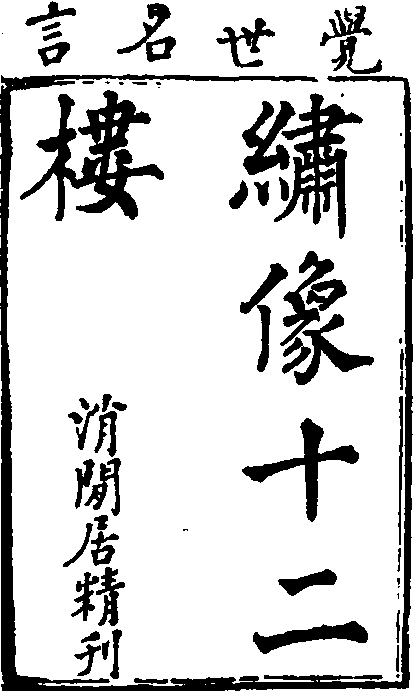 覺世名言
繡像十二
樓
消閒居精刊